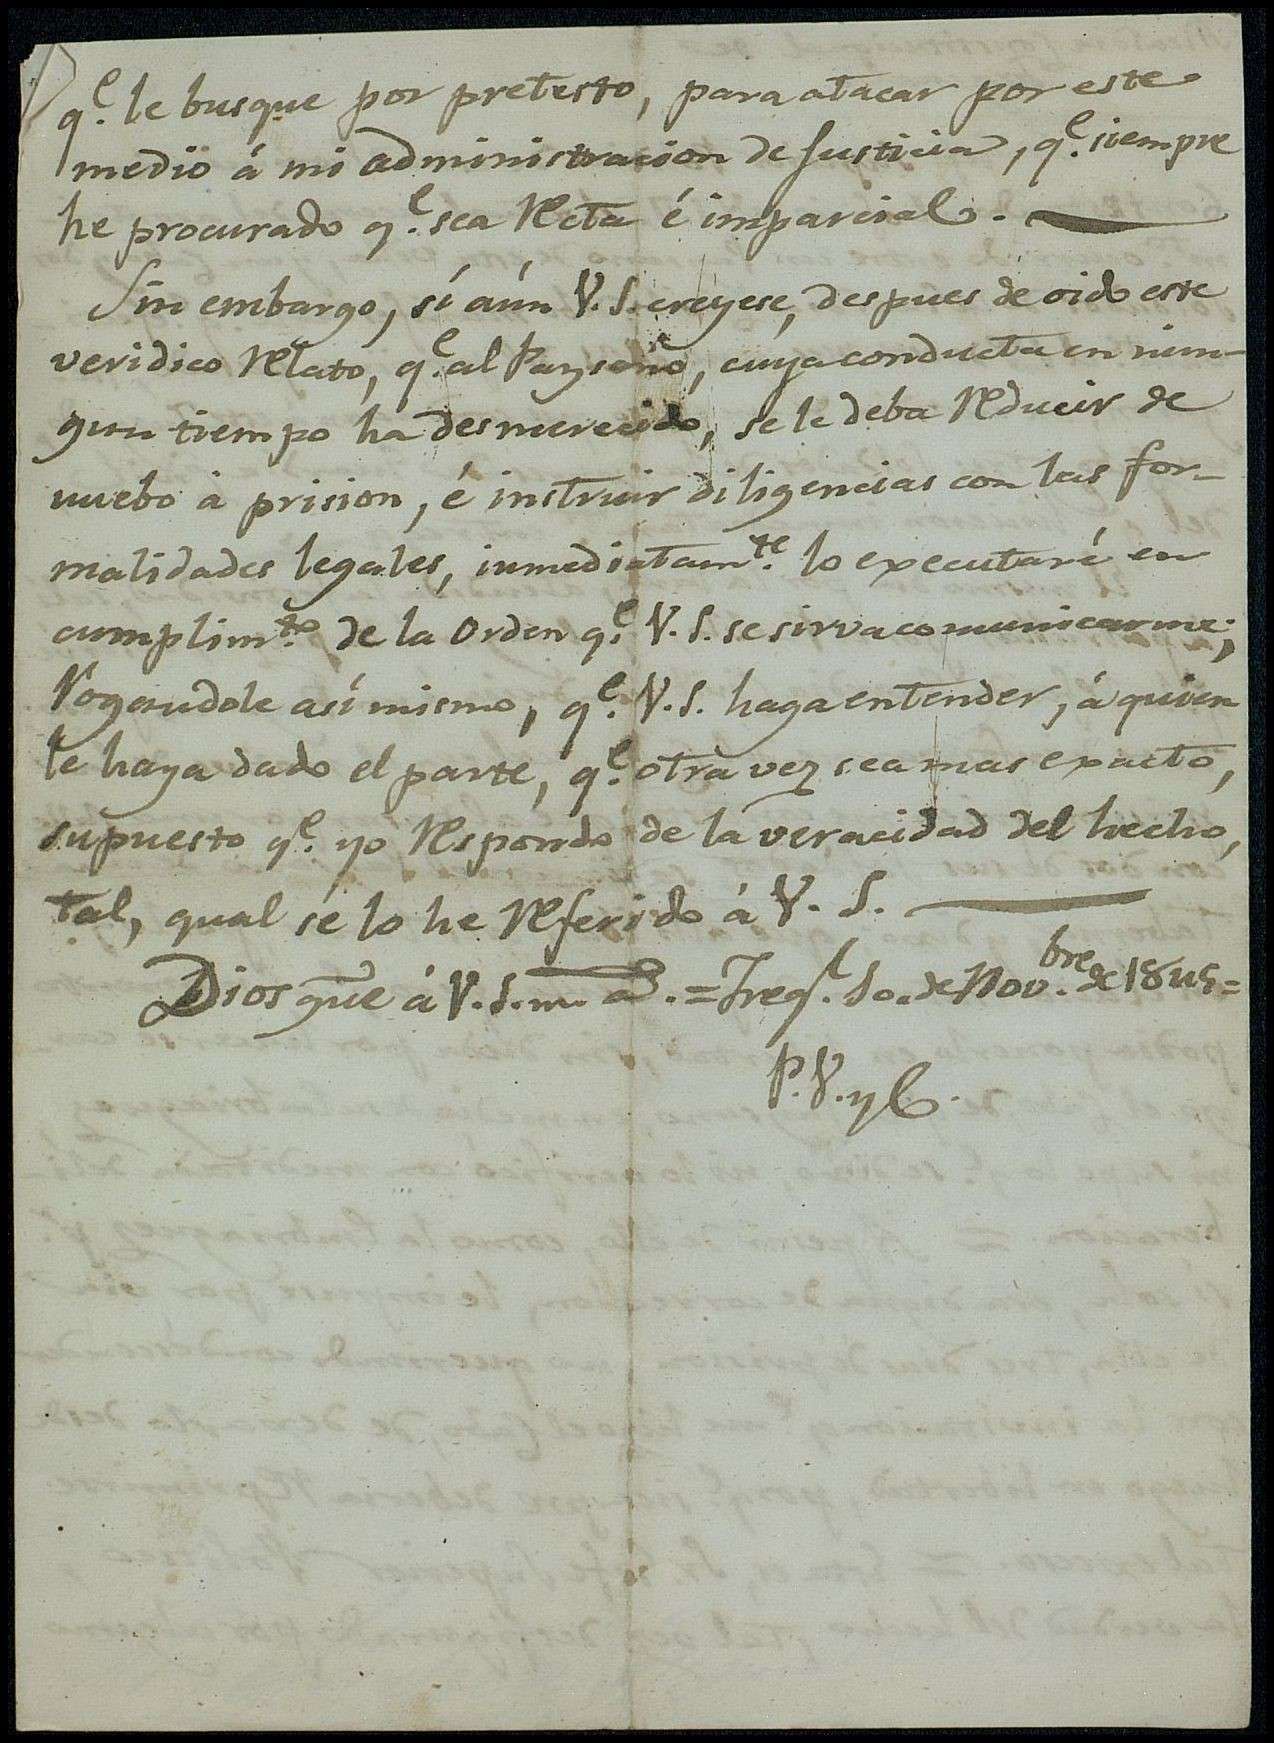 q.e le busque por pretesto, para atacar por este
medio á mi administracion de Justicia, q.e siempre
he procurado q.e sea Recta é imparcial.
Sin embargo, sí aún V. S. creyese, despues de oido este
veridico Relato, q.e al Paysano, cuya conducta en nin-
gun tiempo ha desmerecido, se le deba Reducir de
nuebo á prision, é instruir diligencias con las for-
malidades legales, inmediatam.te lo executaré en
cumplim.to de la Orden q.e V. S. se sirva comunicarme;
Rogandole así mismo, q.e V. S. haga entender, á quien
le haya dado el parte, q.e otra vez sea mas exacto,
supuesto q.e yo Respondo de la veracidad del hecho,
tal, qual se lo he Referido á V. S.
Dios gue á V. S. m. a.s = de Nov.bre de
P. V. y C.